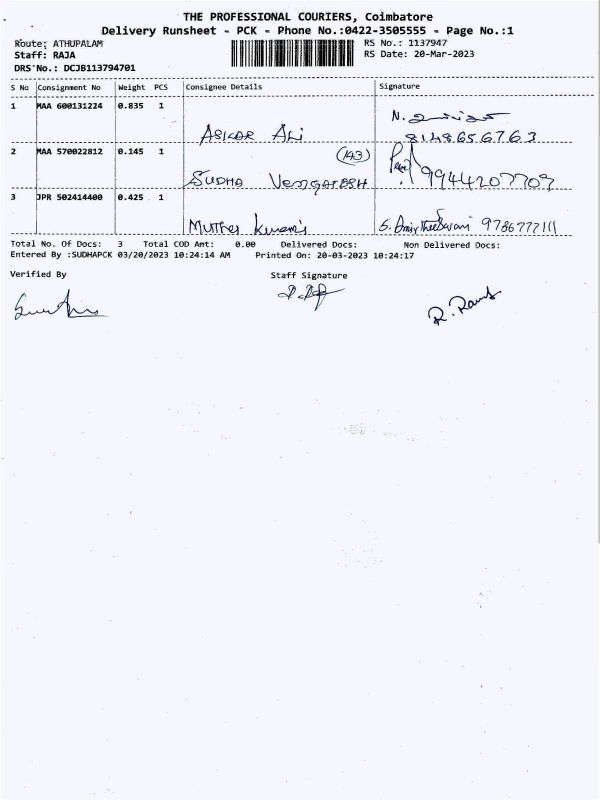 THE PROFESSIONAL COURIERS, Coimbatore
Delivery Runsheet - PCK - Phone No.:0422-3505555 - Page No.:1
Route: ATHUPALAM RS No.: 1137947
Staff: RAJA RS Date: 20-Mar-2023
DRS No.: DCJB113794701
S No Consignment No Weight PCS Consignee Details Signature
1 MAA 600131224 0.835 1
N.
ASIKAR ALi 8148656763
2 MAA 570022812 0.145 1 (143)
SUDHA VENGATESH 9944207709
3 JPR 502414400 0.425 1
Muthu Kumari S. Amirtheeswari 9786777111
Total No. Of Docs: 3 Total COD Amt: 0.00 Delivered Docs: Non Delivered Docs:
Entered By :SUDHAPCK 03/20/2023 10:24:14 AM Printed On: 20-03-2023 10:24:17
Verified By Staff Signature